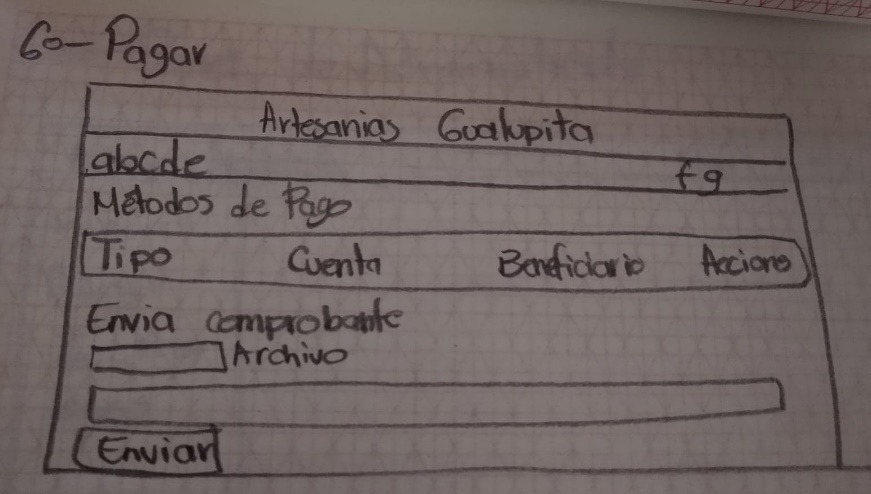 60- Pagar
Artesanias Gualupita
abcde fg
Métodos de Pago
Tipo Cuenta Beneficiario Acciono
Envia comprobante
Archivo
Enviar